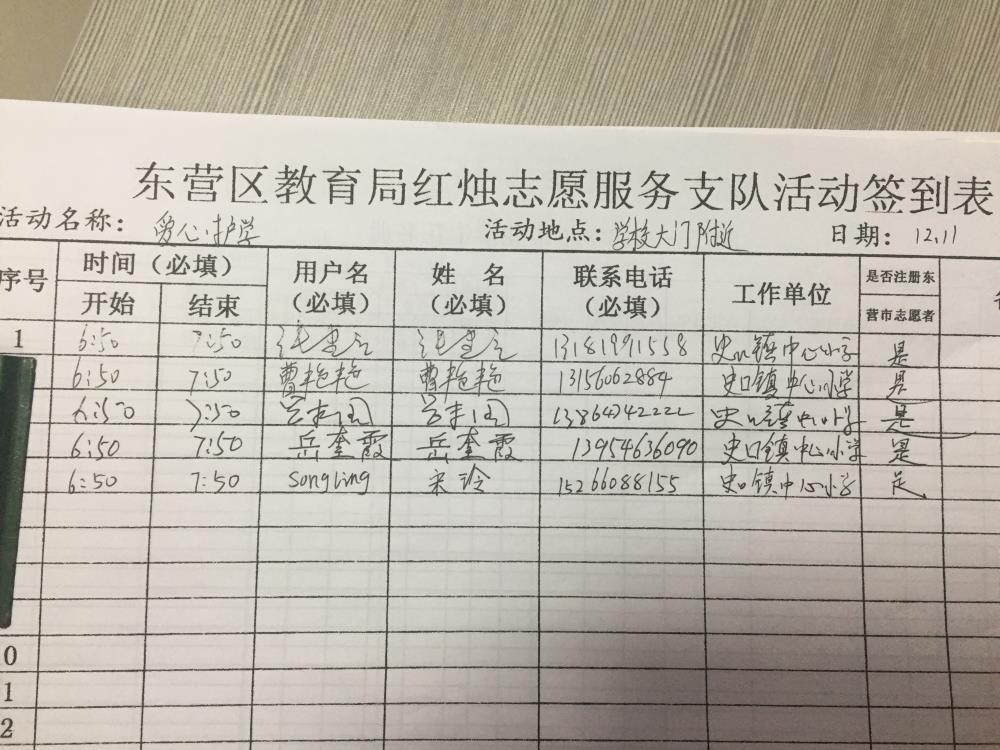 东营区教育局红烛志愿服务支队活动签到表
活动名称： 爱心护学 活动地点：学校大门附近 日期： 12.11
序号 时间（必填） 用户名（必填） 姓 名（必填） 联系电话（必填） 工作单位 是否注册东营市志愿者
开始 结束
1 6:50 7:50 13181991558 史口镇中心小学 是
6:50 7:50 曹艳艳 曹艳艳 13156062884 史口镇中心小学 是
6:50 7:50 13864742222 史口镇中心小学 是
6:50 7:50 岳奎霞 岳奎霞 13954636090 史口镇中心小学 是
6:50 7:50 songling 宋玲 15266088155 史口镇中心小学 是
0
1
2